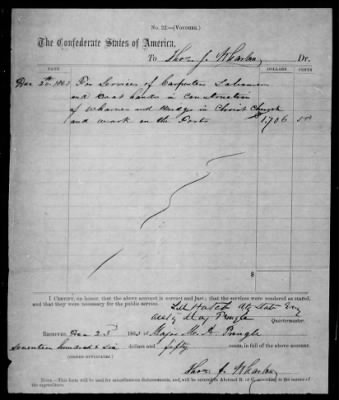 No. 22.—(Voucher.)
The Confederate States of America,
To Thos. J. Wharton, Dr.
DOLLARS CENTS
Dec 1863 For Services of Carpenters Laborers
and Boat hands in Construction
of Wharves and Bridge in Christ Church
and work on the Ports 1,706 50
$
I CERTIFY, on honor, that the above account is correct and just; that the services were rendered as stated,
and that they were necessary for the public service.
Maj Pringle
Quartermaster.
RECEIVED, Dec 23 1863 of Major M. A. Pringle
Seventeen hundred & Six dollars and fifty cents, in full of the above account.
(SIGNED DUPLICATES.)
Thos. J. Wharton
NOTE.—This form will be used for miscellaneous disbursements, and will be entered in Abstract B. or C. according to the nature of
the expenditure.